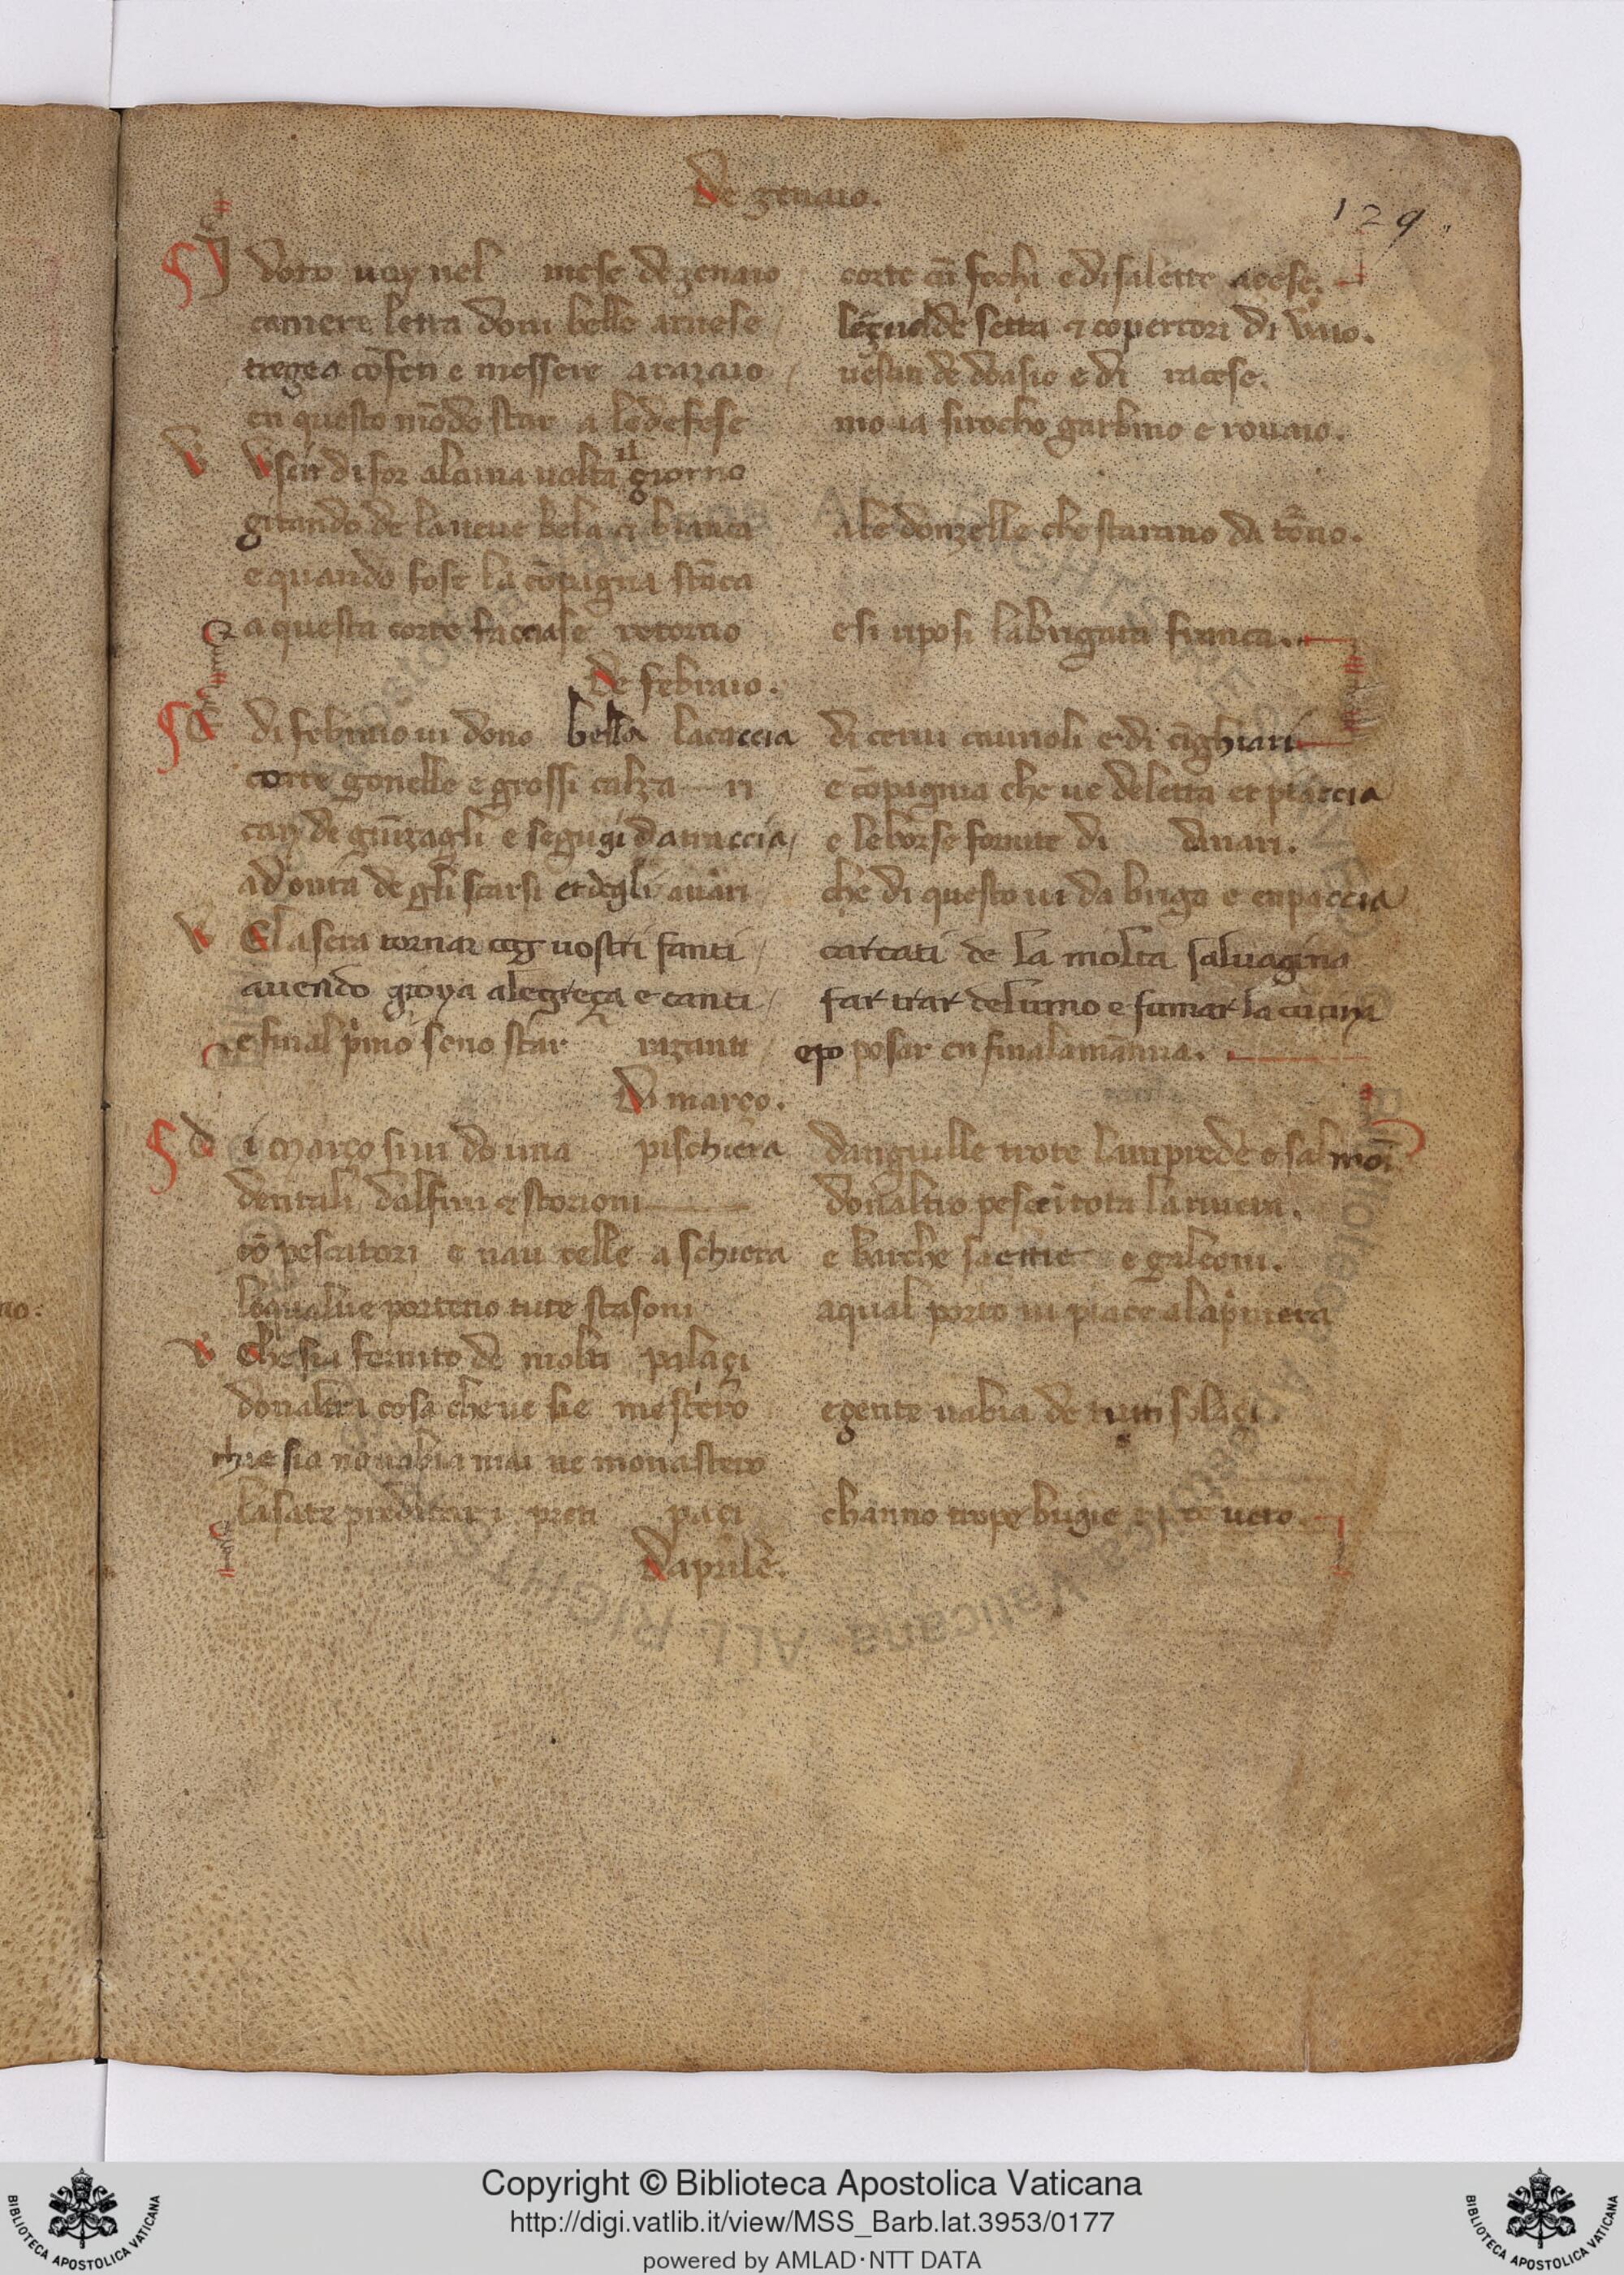 De genaio.
129.
I doto uoy nel mese de zenaio corte cū fochi e di salette acese.
camere letta doni bello arnese leçuol de setta & copertori di vaio.
tregea cōfeti e messere arazaio uestiti de doasio e di racese.
en questo mōdo star a le defese moua sirocho garbino e rouaio.
Vscir di for alcuna uolta il giorno
gitando de la neue bela & bianca a le donzelle che starano da torno.
e quando fose la cōpagna stāca
a questa corte facciase retorno e si riposi la brigata franca.
De febraio.
E di febraio ui dono bella la caccia di cerui caurioli e di cīghiari
corte gonelle e grossi calzari e cōpagnia che ue deletta et piaccia
can de guīzagli e segugi da traccia e le borse fornite di dinari.
ad onta de gli scarsi et degli auari che di questo ui da briga e enpaccia
E la sera tornar cog uostri fanti carcati de la molta saluagina
auendo gioya alegreça e canti far trar del uino e fumar la cucina
e fin al pͥmo sono star razanti epo posar en fin a la matina.
Di março.
Di março si ui do una pischiera danguille trote lamprede e salmoī
dentali dalfini & storioni donaltro pesce ī tota la riuera.
cō pescatori e nauicelle a schiera e barche saettie e galeoni.
le qual ue porteno tute stasoni a qual porto ui piace a la pͥmera
Che sia fornito de molti palaçi
donaltri cosa che ue sie mestero e gente uabia de tuti solaçi.
chiesia no uabia mai ne monastero
lasate predicar i preti paçi channo trope bugie e poco uero.
Daprile.
Copyright © Biblioteca Apostolica Vaticana
http://digi.vatlib.it/view/MSS_Barb.lat.3953/0177
powered by AMLAD·NTT DATA
BIBLIOTECA APOSTOLICA VATICANA
BIBLIOTECA APOSTOLICA VATICANA